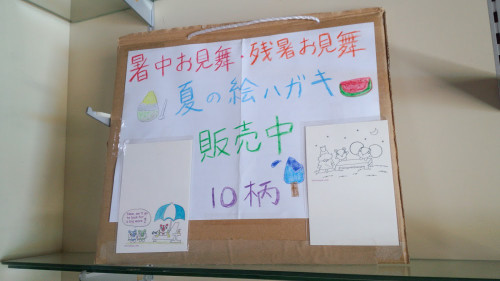 暑中お見舞・残暑お見舞
夏の絵ハガキ
販売中
10柄